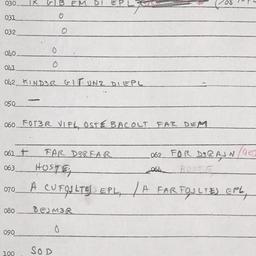 030 IK GIB EM DI EPL
031 0
032 0
040 0
041 0
042 KINDƎR GIT UNZ DI EPL
050 —
060 FOTƎR VIPL OSTE BACOLT FAR DEM
061 + FAR DƎRFAR 062 FOR DƎRAJN
063 HOSTE, 064 HOSTE
070 A CUFOJLTE EPL, / A FARFOJLTEJ EPL,
080 BEJMƎR
090 0
100 SOD